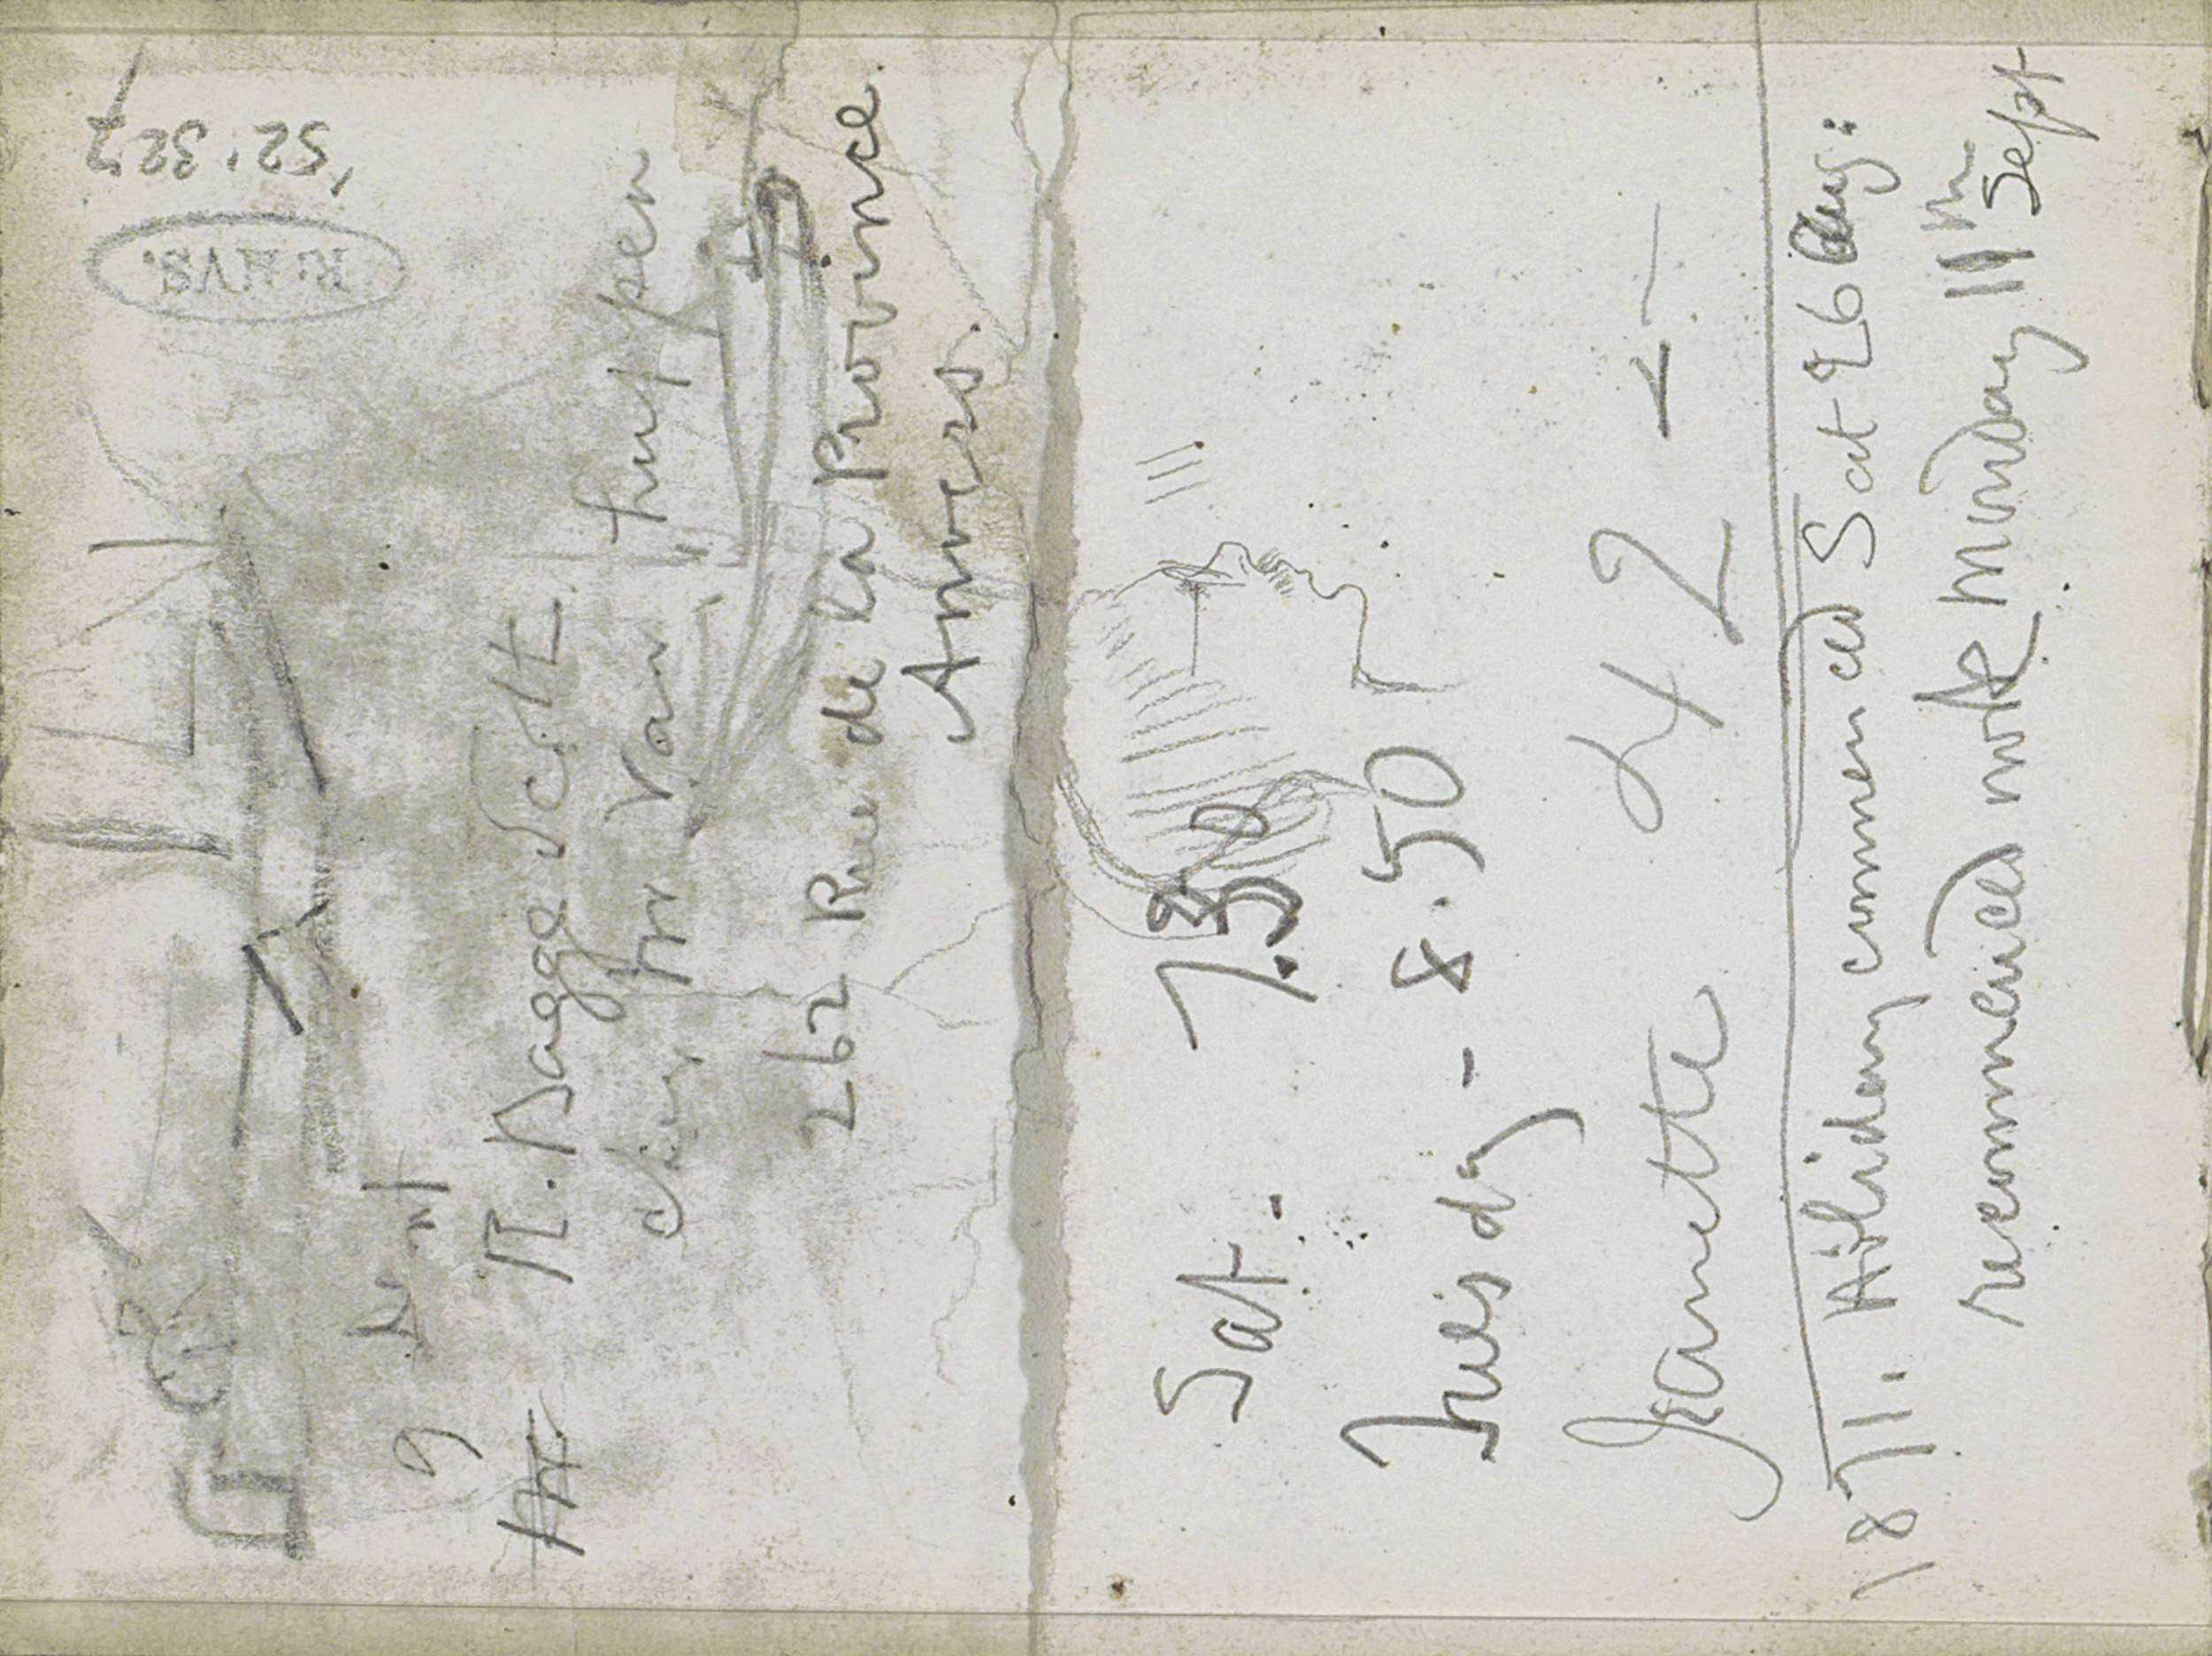 '52:327
R:MVS.
9
R. Dagge
chez Mr Van humpen
262 Rue de la Province
Anvers.
Sat. 7.30
Tuesdy - 8.50
Jeanette 42
1871. Holiday commenced Sat 26 Aug:
recommenced work Monday 11th Sept